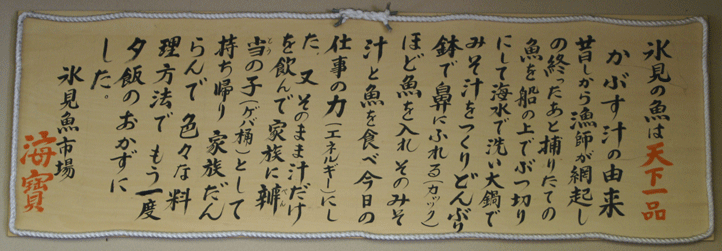 氷見の魚は天下一品
かぶす汁の由来
昔しから漁師が網起し
の終ったあと捕りたての
魚を船の上でぶつ切り
にして海水で洗い大鍋で
みそ汁をつくりどんぶり
鉢で鼻にふれる(カック)
ほど魚を入れそのみそ
汁と魚を食べ今日の
仕事の力(エネルギー)にし
た。又そのまま汁だけ
を飲んで家族に辨
当の子(ゲバ桶)として
持ち帰り 家族だん
らんで 色々な料
理方法でもう一度
夕飯のおかずに
した。
氷見魚市場
海寶